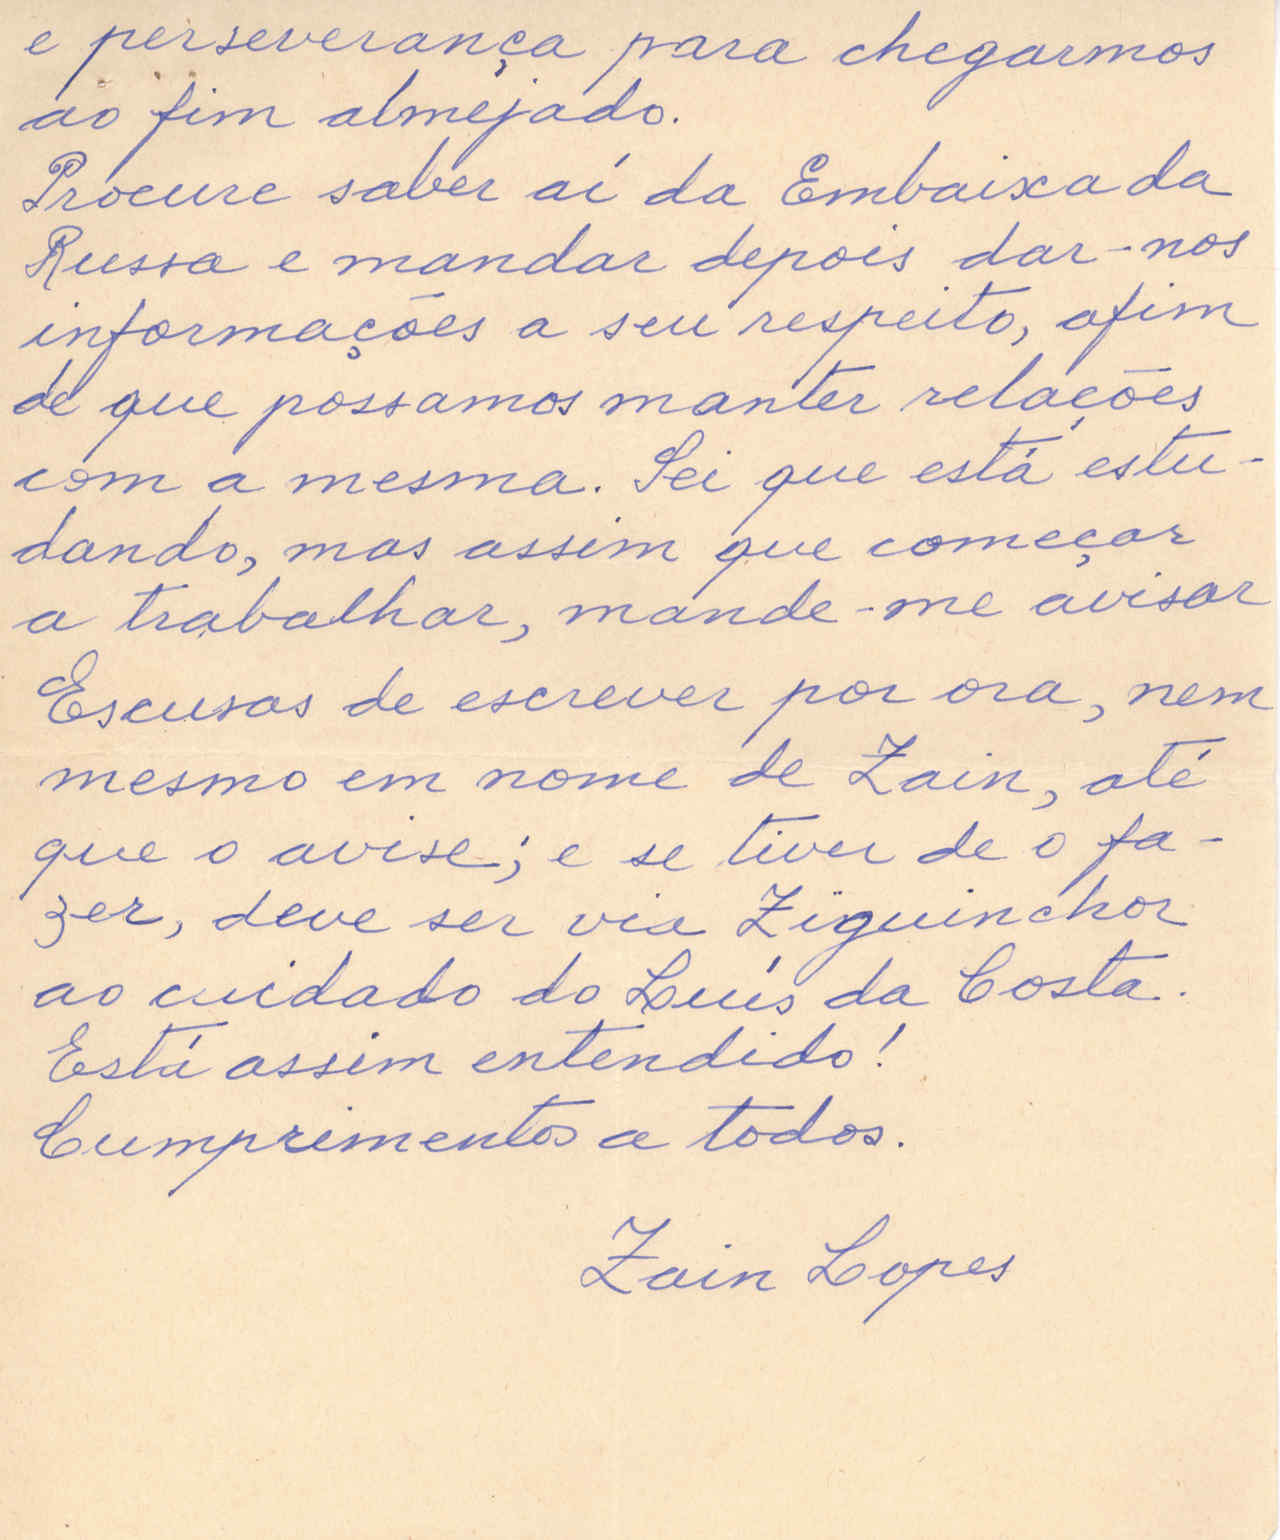 e perseverança para chegarmos
ao fim almejado.
Procure saber aí da Embaixada
Russa e mandar depois dar-nos
informações a seu respeito, afim
de que possamos manter relações
com a mesma. Sei que está estu-
dando, mas assim que começar
a trabalhar, mande-me avisar
Escusas de escrever por ora, nem
mesmo em nome de Zain, até
que o avise; e se tiver de o fa-
zer, deve ser via Ziguinchor
ao cuidado do Luís da Costa.
Está assim entendido!
Cumprimentos a todos.
Zain Lopes